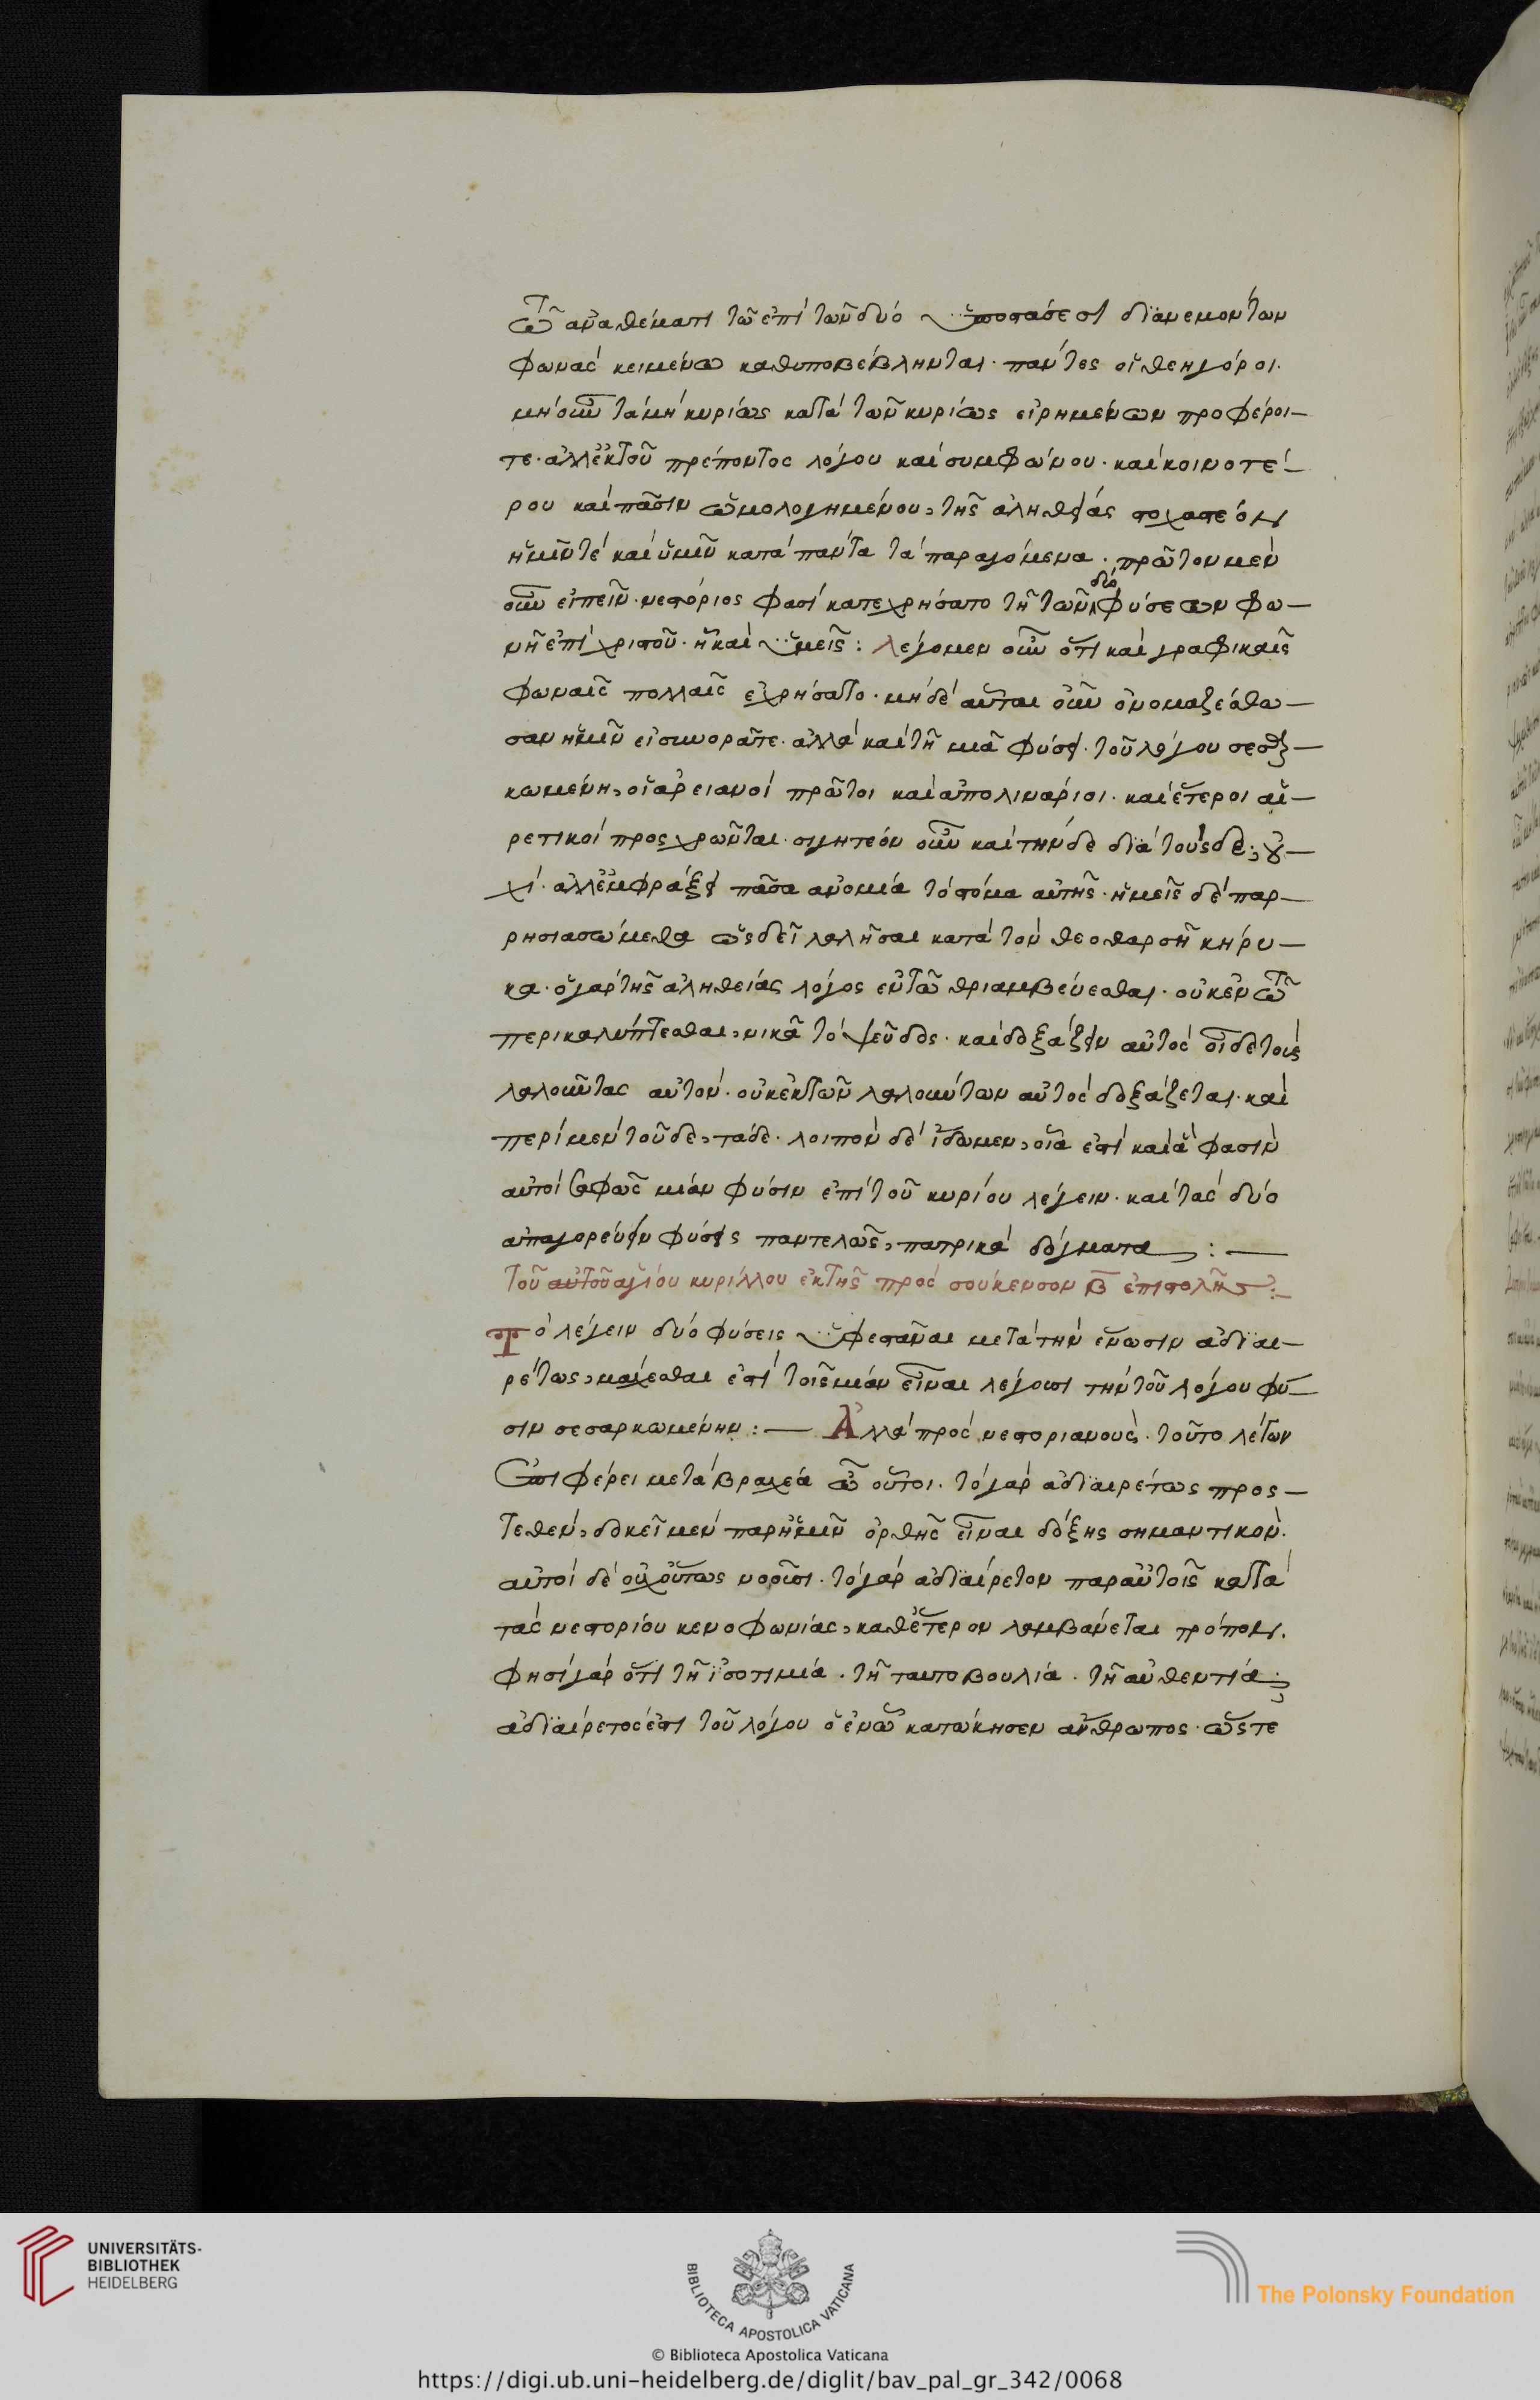 τῶ ἀναθέματι τῶ ἐπὶ τῶν δύο ὑποστάσεσι διανεμόντων
φωνὰς κειμένω καθυποβέβληνται· πάντες οἱ θεηγόροι.
μὴ οὖν τὰ μὴ κυρίως κατὰ τῶν κυρίως εἰρημένων προφέροι–
τε· ἀλλ' ἐκ τοῦ πρέποντος λόγου καὶ συμφώνου· καὶ κοινοτέ–
ρου καὶ πᾶσιν ὡμολογημένου, τῆς ἀληθείας στοχαστέον
ἡμῖν τὲ καὶ ὑμῖν κατὰ πάντα τὰ παραγόμενα· πρῶτον μὲν
οὖν εἰπεῖν· νεστόριος φασὶ κατεχρήσατο τῆ τῶν δύο φύσεων φω–
νῆ ἐπὶ χριστοῦ· ἧ καὶ ὑμεῖς: λέγομεν οὖν ὅτι καὶ γραφικαῖς
φωναῖς πολλαῖς ἐχρήσατο· μηδὲ αὗται οὖν ὀνομαζέσθω–
σαν ἡμῖν εἰσωορᾶτε· ἀλλὰ καὶ τῆ μιᾶ φύσει· τοῦ λόγου σεσαρ–
κωμένη, οἱ ἀρειανοὶ πρῶτοι καὶ ἀπολινάριοι· καὶ ἕτεροι αἱ–
ρετικοὶ προσχρῶνται· σιγητέον οὖν καὶ τήνδε διὰ τούσδε; ου–
χί· ἀλλ' ἐμφράξει πᾶσα ἀνομία τὸ στόμα αὐτῆς· ἡμεῖς δὲ παρ–
ρησιασώμεθα ὡς δεῖ λαλῆσαι κατὰ τὸν θεοθαρσῆ κήρυ–
κα· ὁ γὰρ τῆς ἀληθείας λόγος ἐν τῶ θριαμβεύεσθαι· οὐκ ἐν τῶ
περικαλύπτεσθαι, νικᾶ τὸ ψεῦδος· καὶ δοξάζειν αὐτὸς οἶδε τοὺς
λαλοῦντας αὐτόν· οὐκ ἐκ τῶν λαλούντων αὐτὸς δοξάζεται· καὶ
περὶ μὲν τοῦδε, τάδε· λοιπὸν δὲ ἴδωμεν, οἷά ἐστι καὶ ἅ φασὶν
αὐτοὶ σαφῶς μίαν φύσιν ἐπὶ τοῦ κυρίου λέγειν· καὶ τὰς δύο
ἀπαγορεύειν φύσεις παντελῶς, πατρικὰ δόγματα :–
τοῦ αὐτοῦ ἁγίου κυρίλλου ἐκ τῆς πρὸς σούκενσον β̅ ἐπιστολῆς:–
Τὸ λέγειν δύο φύσεις ὑφεστάναι μετὰ τὴν ἕνωσιν ἀδιαι–
ρέτως, μάχεσθαι ἐστὶ τοῖς μίαν εἶναι λέγουσι τὴν τοῦ λόγου φύ–
σιν σεσαρκωμένην :– Ἀλλὰ πρὸς νεστοριανοὺς· τοῦτο λέγων
ἐπιφέρει μετὰ βραχέα ὦ οὗτοι· τὸ γὰρ ἀδιαιρέτως προς–
τεθὲν, δοκεῖ μὲν παρ' ἡμῖν ὀρθῆς εἶναι δόξης σημαντικόν.
αὐτοὶ δὲ οὐχ οὕτως νοοῦσι· τὸ γὰρ ἀδιαίρετον παρ' αὐτοῖς κατὰ
τὰς νεστορίου κενοφωνίας, καθ' ἕτερον λαμβάνεται τρόπον.
φησὶ γὰρ ὅτι τῆ ἰσοτιμία· τῆ ταυτοβουλία· τῆ αὐθεντία·
ἀδιαίρετός ἐστι τοῦ λόγου ὁ ἐν ὧ κατώκησεν ἄνθρωπος· ὥστε
UNIVERSITÄTS-
BIBLIOTHEK
HEIDELBERG
BIBLIOTECA APOSTOLICA VATICANA
The Polonsky Foundation
© Biblioteca Apostolica Vaticana
https://digi.ub.uni-heidelberg.de/diglit/bav_pal_gr_342/0068